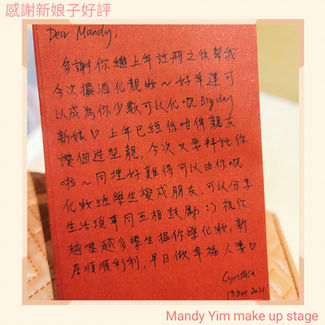 感謝新娘子好評
Dear Mandy,
多謝你繼上年註冊之後幫我
今次擺酒化靚妝～好幸運可
以成為你少數可以化嘅Big day
新娘♡上年已經你咁俾親友
讚個造型靚，今次又要拜託你
啦～同埋好難得可以由你嘅
化妝班學生變成朋友，可以分享
生活瑣事同互相鼓勵:) 祝你
越嚟越多學生搵你學化妝，新
居順順利利，早日做幸福人妻♡
Cynthia
17 Dec 2021
Mandy Yim make up stage